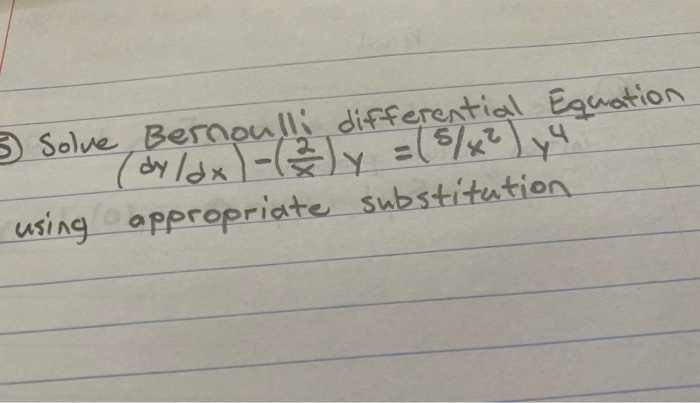 5) Solve Bernoulli differential Equation
(dy/dx) - (2/x) y = (5/x²) y⁴
using appropriate substitution